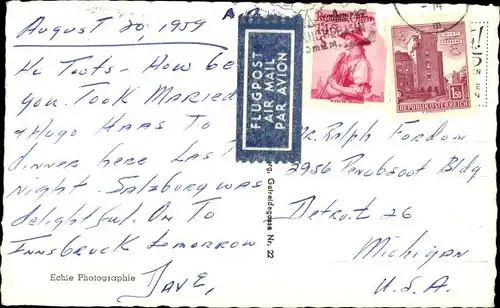 August 20, 1959
Hi Toots - How be
you. Took Married
& Hugo Haas To
dinner here Last
night. Salzburg was
delightful. On To
Innsbruck tomorrow
Dave,
Echte Photographie
FLUGPOST
AIR MAIL
PAR AVION
Getreidegasse Nr. 22
14
1.50
REPUBLIK ÖSTERREICH
Mr. Ralph Fordon
2956 Penobscot Bldg
Detroit 26
Michigan
U.S.A.